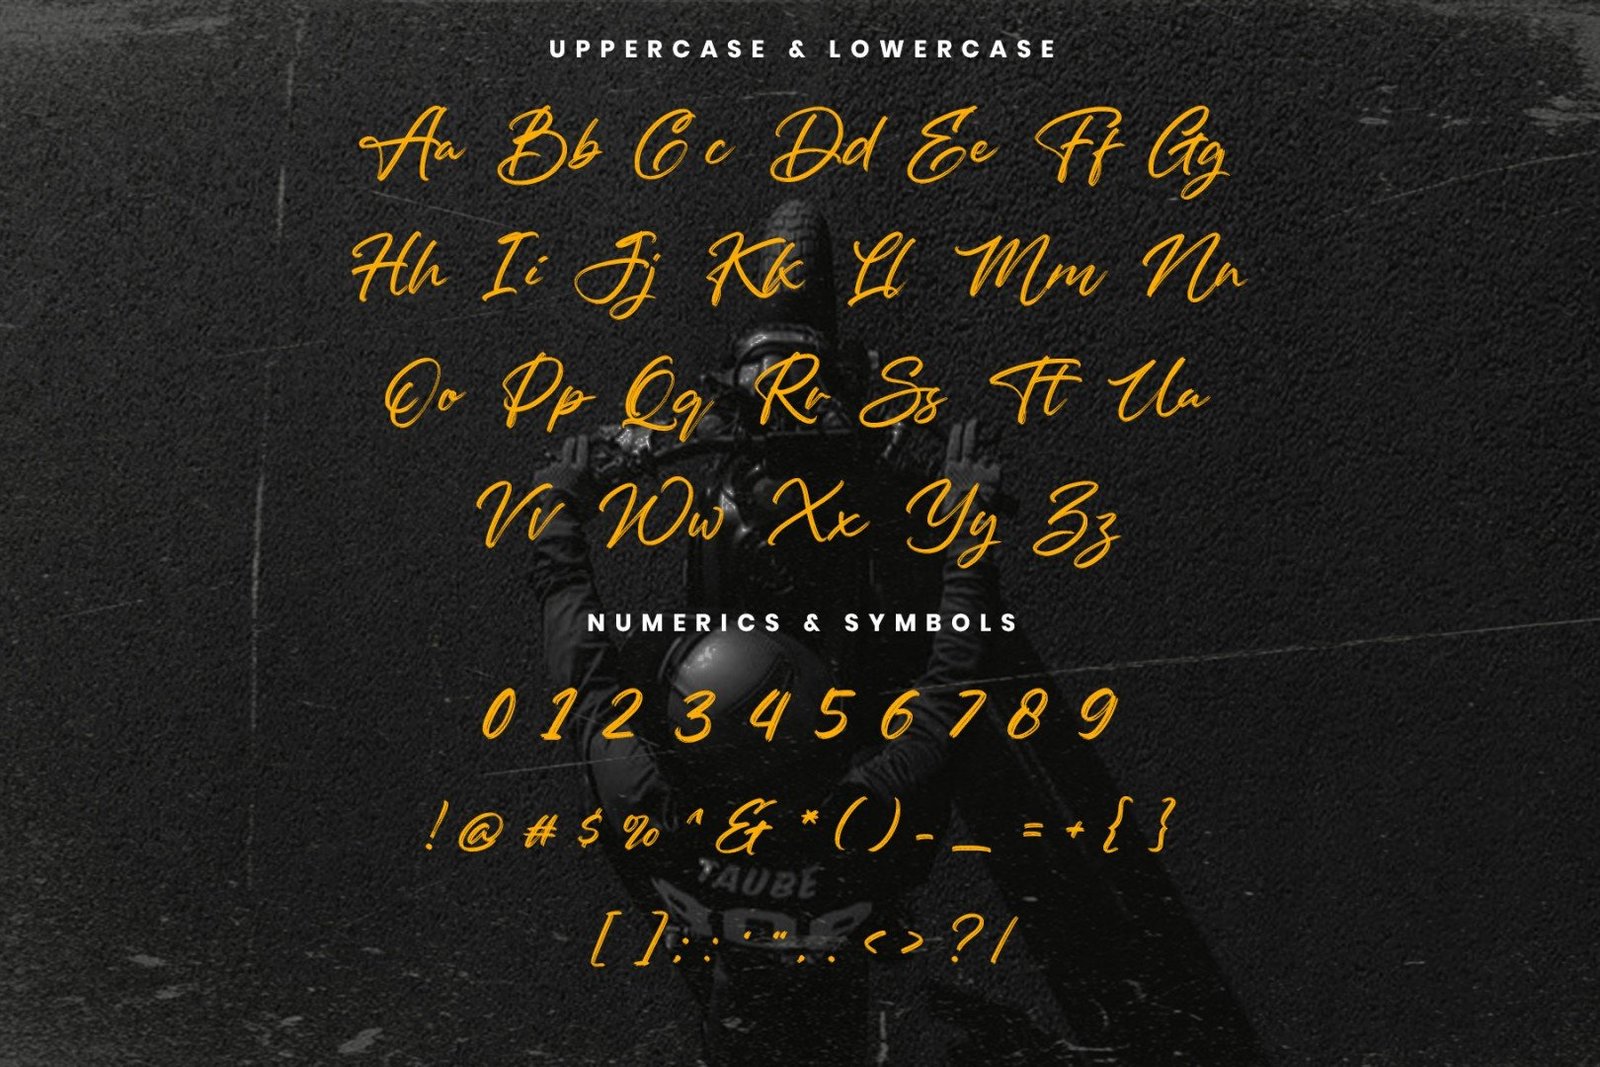 UPPERCASE & LOWERCASE
Aa Bb Cc Dd Ee Ff Gg
Hh Ii Jj Kk Ll Mm Nn
Oo Pp Qq Rr Ss Tt Uu
Vv Ww Xx Yy Zz
NUMERICS & SYMBOLS
0 1 2 3 4 5 6 7 8 9
! @ # $ % ^ & * ( ) - _ = + { }
TAUBE
[ ] ; : ' " , . < > ? /